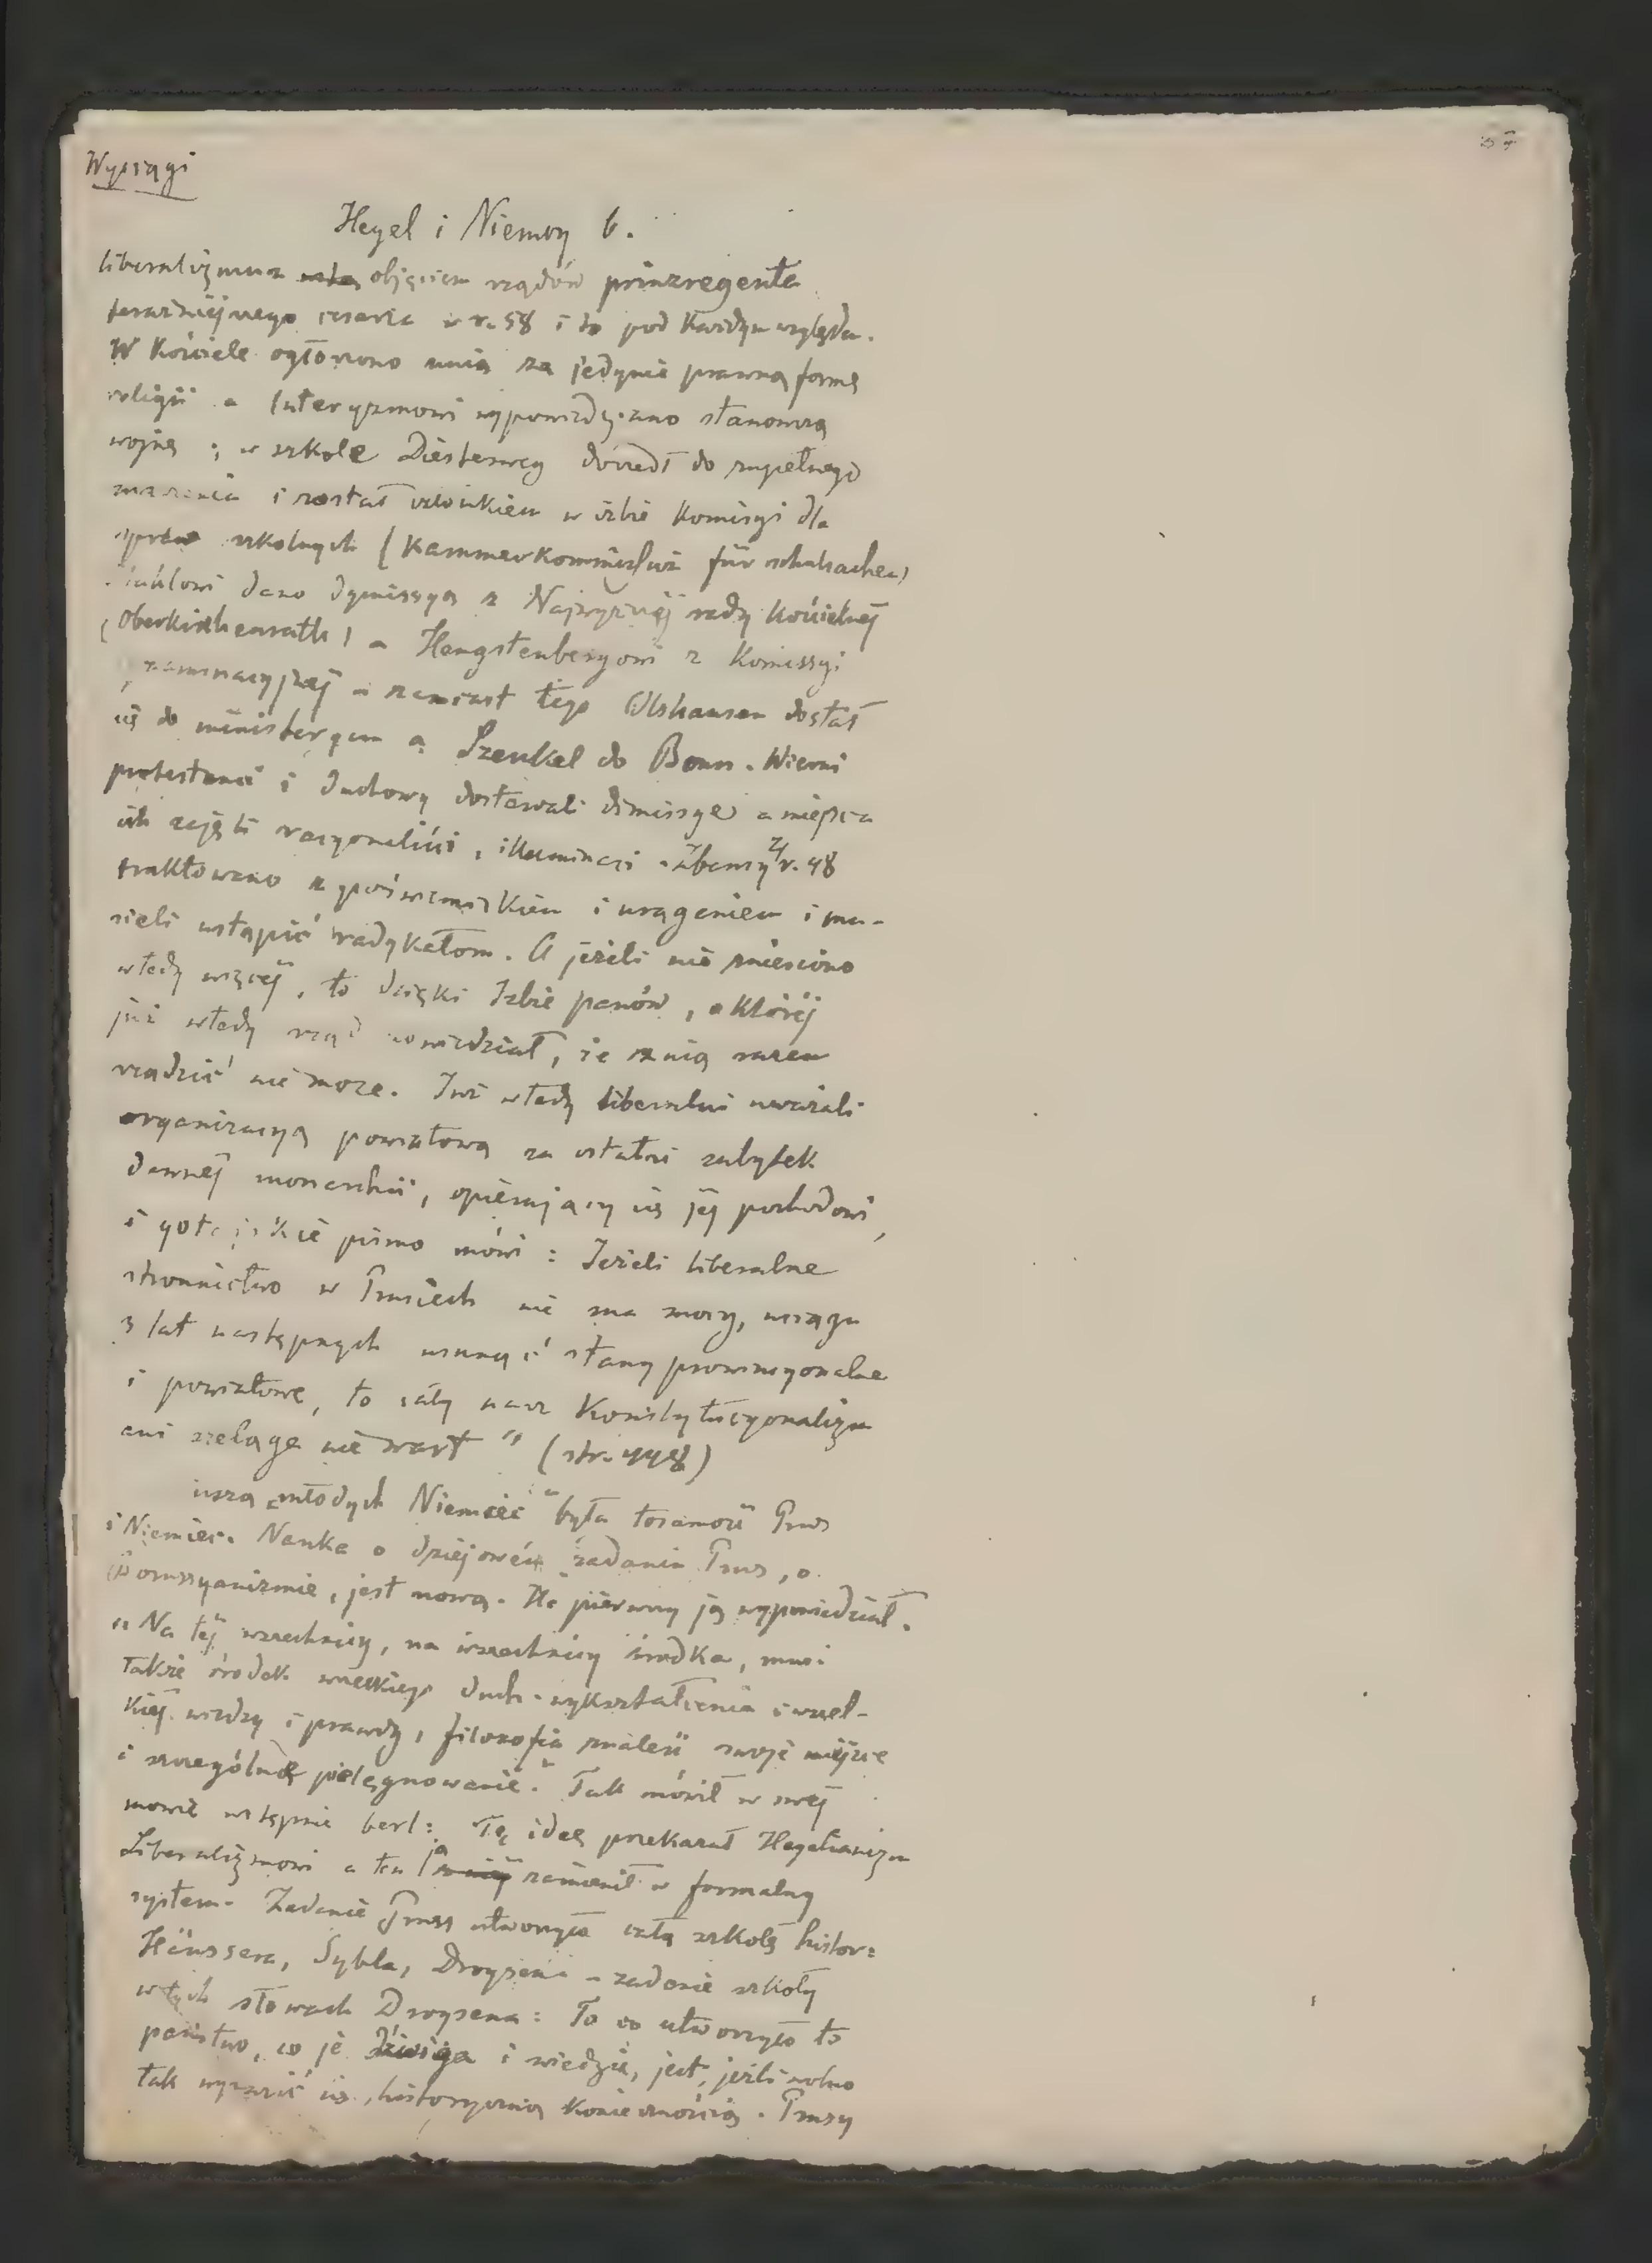 Wyciągi
Hegel i Niemcy 6.
liberalizmu z objęciem rządów prinzregenta
teraźniejszego cesarza w r. 58 i to pod każdym względem.
W Kościele ogłoszono unią za jedynie prawną formę
religii a luteryzmowi wypowiedziano stanowczą
wojnę ; w szkole Diesterweg doszedł do zupełnego
znaczenia i został członkiem w izbie Komisyi dla
spraw szkolnych (Kammerkommission für Schulsachen)
Stahlowi dano dymissyą z Najwyższej rady Kościelnej
(Oberkirchenrath) a Hengstenbergowi z Komissyi
examinacyjnej a zamiast tego Olshausen dostał
się do ministeryum a Szenkel do Bonn. Wierni
protestanci i duchowny dostawali dimissye a miejsca
ich zajęli racyonaliści, illuminaci. z r. 48
traktowano z pośmiewiskiem i urąganiem i mu-
sieli ustąpić radykałom. A jeżeli nie zniesiono
wtedy więcej, to dzięki Izbie panów, o której
już wtedy rząd powiedział, że z nią razem
rządzić nie może. Już wtedy liberalni uważali
organizacyą powiatową za ostatni zabytek
dawnej monarchii, opierający się jej pochodowi,
i gotajskie pismo mówi : Jeżeli liberalne
stronnictwo w Prusiech nie ma mocy, w ciągu
3 lat następnych usunąć stany prowincyonalne
i powiatowe, to cały nasz Konstytucyonalizm
ani szeląga nie wart " (str. 448)
"młodych Niemiec" była tożsamość Prus
i Niemiec. Nauka o dziejowém zadaniu Prus, o
Borussyanizmie, jest nową. H. pierwszy ją wypowiedział.
"Na tej wszechnicy, na wszechnicy środka, musi
także środek wszelkiego duch. wykształcenia i wszel-
kiej wiedzy i prawdy, filozofia znaleść swoje miejsce
i szczególne pielęgnowanie." Tak mówił w swej
mowie wstępnie berl: Tę ideę przekazał Hegelianizm
Liberalizmowi a ten ją zamienił w formalny
system. Zadanie Prus utworzyło całą szkołę histor:
Häussera, Sybla, Droysena a zadanie szkoły
w tych słowach Droysena: To co utworzyło to
państwo, co je dźwiga i wiedzie, jest, jeżeli wolno
tak wyrazić się, historyczną koniecznością. Prusy